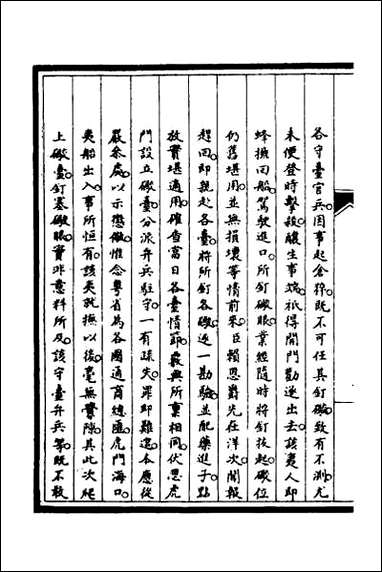 各守臺官兵因事起倉猝既不可任其釘礮致有不測尤
未便登時擊殺釀生事端祇得開門勸逐出去該夷人即
蜂擁回船駕駛進口所釘礮眼業經隨時將釘拔起礮位
仍舊堪用並無損壞等情前來臣賴恩爵先在洋次聞報
趕回即親赴各臺將所釘各礮逐一勘驗並配藥進子點
放實堪適用確查當日各臺情節嚴與所稟相同伏思虎
門設立礮臺分派弁兵駐守一有疎失罪即難逭本應從
嚴參處以示懲儆惟念粵省為各國通商總匯虎門海口
夷船出入事所恒有該夷就撫以後毫無釁隙其此次爬
上礮臺釘塞礮眼實非意料所及該守臺弁兵等既不敢